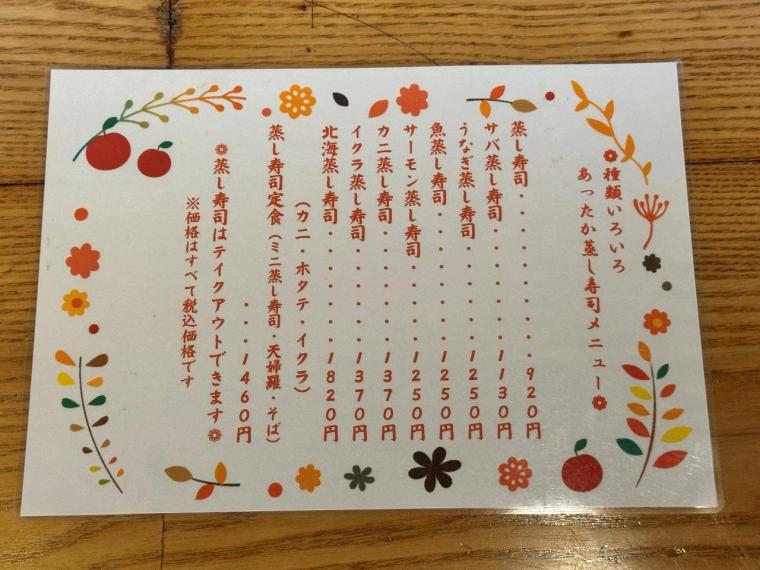 ❁種類いろいろ
あったか蒸し寿司メニュー❁
蒸し寿司・・・・・・・・・920円
サバ蒸し寿司・・・・・・・1130円
うなぎ蒸し寿司・・・・・・1250円
魚蒸し寿司・・・・・・・・1250円
サーモン蒸し寿司・・・・・1250円
カニ蒸し寿司・・・・・・・1370円
イクラ蒸し寿司・・・・・・1370円
北海蒸し寿司・・・・・・・1820円
（カニ・ホタテ・イクラ）
蒸し寿司定食（ミニ蒸し寿司・天婦羅・そば）
・・・1460円
❁蒸し寿司はテイクアウトできます❁
※価格はすべて税込価格です